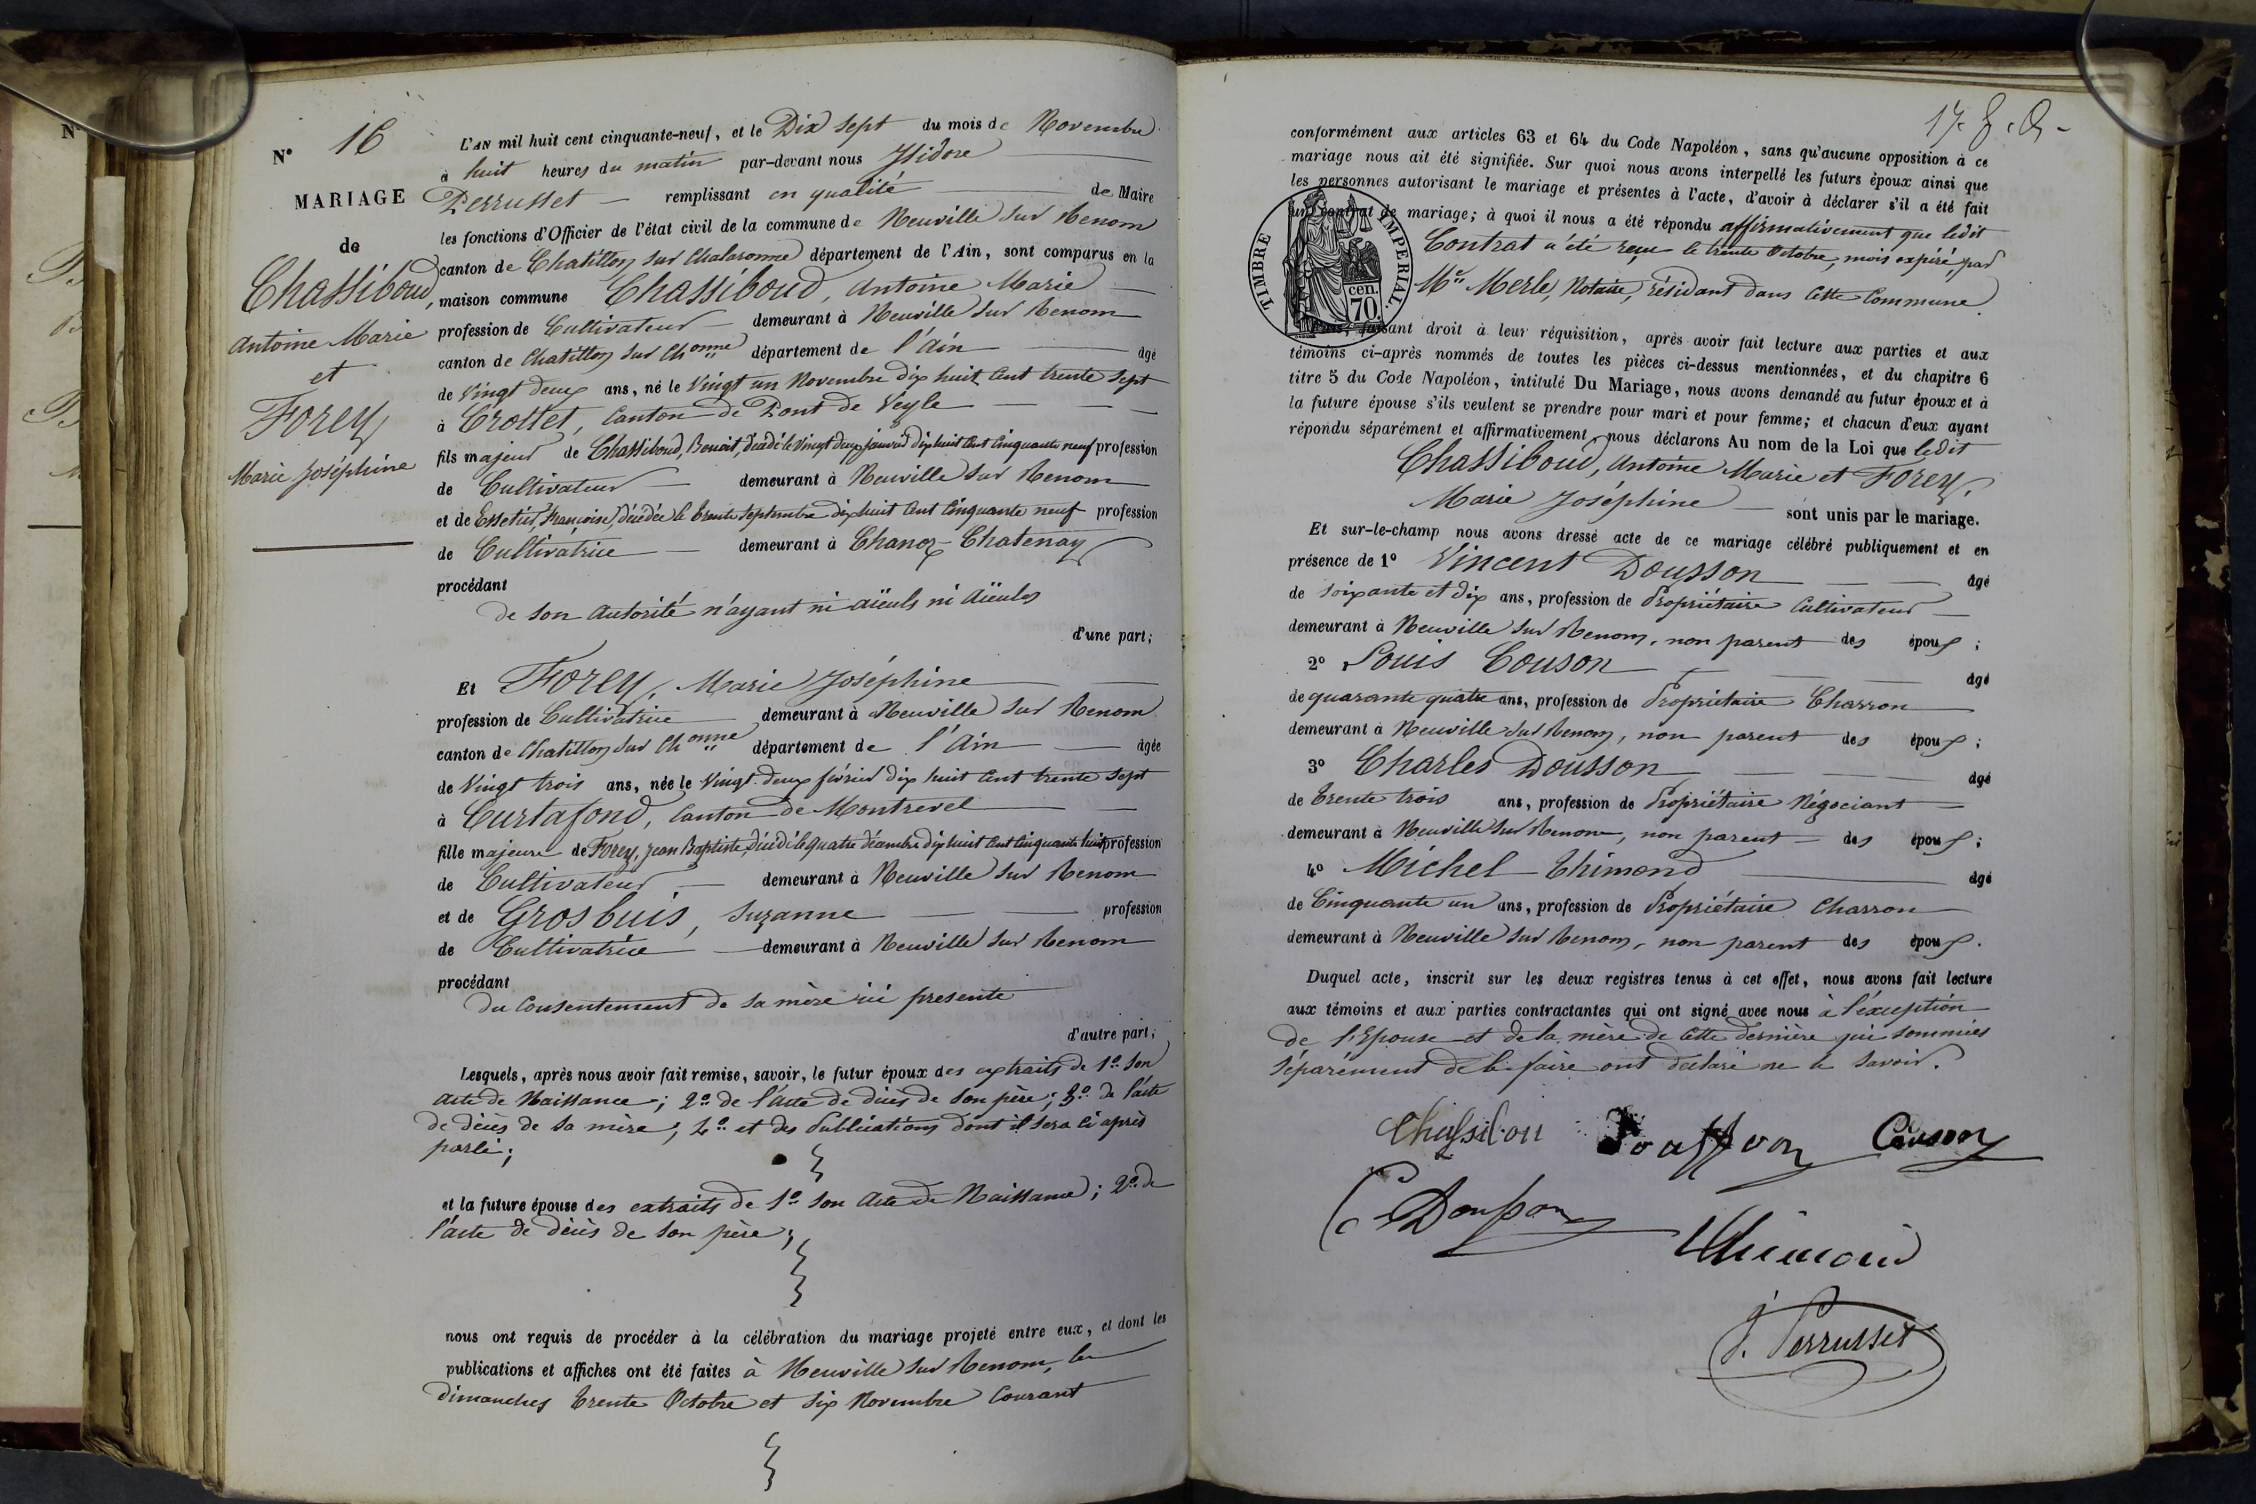 N° 16
MARIAGE
de
Chassiboud,
Antoine Marie
et
Forey
Marie Joséphine
L'AN mil huit cent cinquante-neuf, et le Dix sept du mois de Novembre
à huit heures du matin par-devant nous Isidore
Perrusset remplissant en qualité de Maire
les fonctions d'Officier de l'état civil de la commune de Neuville sur Renom
canton de Chatillon sur Chalaronne département de l'Ain, sont comparus en la
maison commune Chassiboud, Antoine Marie
profession de Cultivateur demeurant à Neuville sur Renom
canton de Chatillon sur Chonne département de l'Ain âgé
de Vingt deux ans, né le Vingt un Novembre dix huit Cent trente sept
à Crottet, Canton de Pont de Veyle
fils majeur de Chassiboud, Benoit, décédé le Vingt deux janvier dix huit Cent Cinquante neuf profession
de Cultivateur demeurant à Neuville sur Renom
et de Françoise, décédée le trente Septembre dix huit Cent Cinquante neuf profession
de Cultivatrice demeurant à Chanoz-Chatenay
procédant
de son Autorité n'ayant ni aïeuls ni Aïeules
d'une part;
Et Forey, Marie Joséphine
profession de Cultivatrice demeurant à Neuville sur Renom
canton de Chatillon sur Chonne département de l'Ain âgée
de Vingt trois ans, née le Vingt-deux février dix huit Cent trente sept
à Curtafond, Canton de Montrevel
fille majeure de Forey, Jean Baptiste, Décédé le quatre décembre dix huit Cent Cinquante huit profession
de Cultivateur, demeurant à Neuville sur Renom
et de Grosbuis, Suzanne profession
de Cultivatrice demeurant à Neuville sur Renom
procédant
du Consentement de sa mère ici presente
d'autre part;
Lesquels, après nous avoir fait remise, savoir, le futur époux des extraits de 1° son
Acte de Naissance; 2° de l'Acte de décès de son père; 3° de l'acte
de décès de sa mère; 4° et des Publications dont il sera ci après
parlé;
et la future épouse des extraits de 1° son Acte de Naissance; 2° de
l'acte de décès de son père;
nous ont requis de procéder à la célébration du mariage projeté entre eux, et dont les
publications et affiches ont été faites à Neuville sur Renom, les
dimanches trente Octobre et six Novembre Courant
conformément aux articles 63 et 64 du Code Napoléon, sans qu'aucune opposition à ce
mariage nous ait été signifiée. Sur quoi nous avons interpellé les futurs époux ainsi que
les personnes autorisant le mariage et présentes à l'acte, d'avoir à déclarer s'il a été fait
un contrat de mariage; à quoi il nous a été répondu affirmativement que ledit
Contrat a été reçu le trente Octobre, mois expiré, par
Me Merle, Notaire, résidant dans Cette Commune.
TIMBRE IMPERIAL.
70. cen.
Puis, faisant droit à leur réquisition, après avoir fait lecture aux parties et aux
témoins ci-après nommés de toutes les pièces ci-dessus mentionnées, et du chapitre 6
titre 5 du Code Napoléon, intitulé Du Mariage, nous avons demandé au futur époux et à
la future épouse s'ils veulent se prendre pour mari et pour femme; et chacun d'eux ayant
répondu séparément et affirmativement, nous déclarons Au nom de la Loi que ledit
Chassiboud, Antoine Marie et Forey,
Marie Joséphine sont unis par le mariage.
Et sur-le-champ nous avons dressé acte de ce mariage célébré publiquement et en
présence de 1° Vincent Dousson âgé
de soixante et dix ans, profession de Propriétaire Cultivateur
demeurant à Neuville sur Renom, non parent des époux;
2° Louis Couson âgé
de quarante quatre ans, profession de Propriétaire Charron
demeurant à Neuville sur Renom, non parent des époux;
3° Charles Dousson âgé
de trente trois ans, profession de Propriétaire Négociant
demeurant à Neuville sur Renom, non parent des époux;
4° Michel Thimond âgé
de Cinquante un ans, profession de Propriétaire Charron
demeurant à Neuville sur Renom, non parent des époux.
Duquel acte, inscrit sur les deux registres tenus à cet effet, nous avons fait lecture
aux témoins et aux parties contractantes qui ont signé avec nous à l'éxception
de l'Epouse et de la mère de Cette dernière qui sommées
séparément de le faire ont déclaré ne le savoir.
Couson
C Dousson
Thimond
J. Perrusset